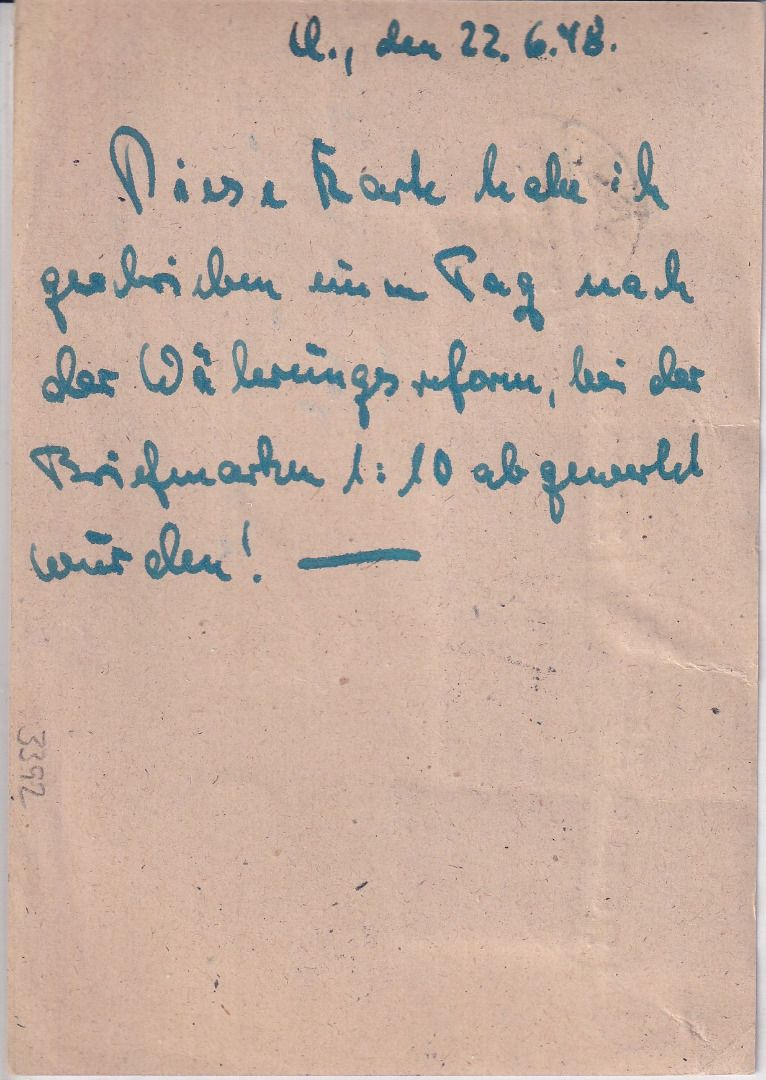 U., den 22.6.48.
Diese Karte habe ich
geschrieben einen Tag nach
der Währungsreform, bei der
Briefmarken 1:10 abgewertet
wurden! —
3392